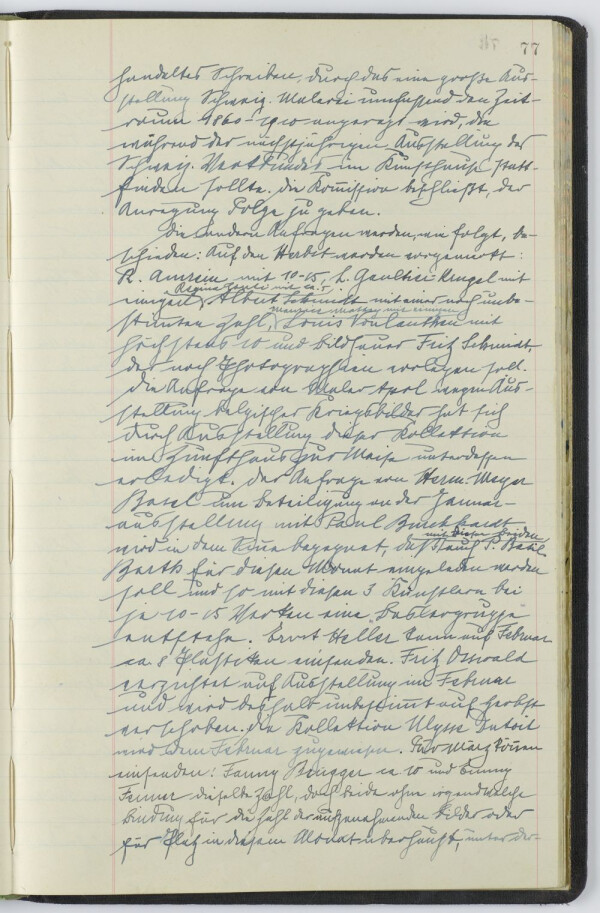 77
handeltes Schreiben, durch das eine große Aus-
stellung Schweiz. Malerei umfassend den Zeit-
raum 1860-1910 angeregt wird, die
während der nächstjährigen Ausstellung des
Schweiz. Werkbundes im Kunsthause statt-
finden sollte. Die Komission beschließt, der
Anregung Folge zu geben.
Die andern Anfragen werden, wie folgt, be-
schieden: Auf den Herbst werden vorgemerkt:
R. Amrein mit 10-15, L. Gaultier mit
einigen, Albert Schmidt mit einer noch unbe-
stimmten Zahl, Louis Vonlanthen mit
höchstens 10 und Bildhauer Fritz Schmidt,
der noch Photographien vorlegen soll.
Die Anfrage von Maler April wegen Aus-
stellung belgischer Kriegsbilder hat sich
durch Ausstellung dieser Kollektion
im Zunfthaus zur Waise unterdessen
erledigt. Der Anfrage von Herm. Meyer
Basel um Beteiligung an der Januar-
ausstellung mit Paul Burckhardt
mit diesen beiden
wird in dem Sinne begegnet, daß auch P. Basil
Barth für diesen Monat eingeladen werden
soll und so mit diesen 3 Künstlern bei
je 10-15 Werken eine Baslergruppe
entstehe. Ernst Heller kann auf Februar
ca 8 Plastiken einsenden. Fritz Osswald
verzichtet auf Ausstellung im Februar
und wird deshalb unbestimmt auf Herbst
verschoben. Die Kollektion Ulysse Dutoit
wird dem Februar zugewiesen. Pro März können
einsenden: Fanny Brügger ca 10 und Emmy
Fenner dieselbe Zahl, doch beide ohne irgendwelche
Bindung für die Zahl der aufzunehmenden Bilder oder
für Platz in diesem Monat überhaupt, unter der-